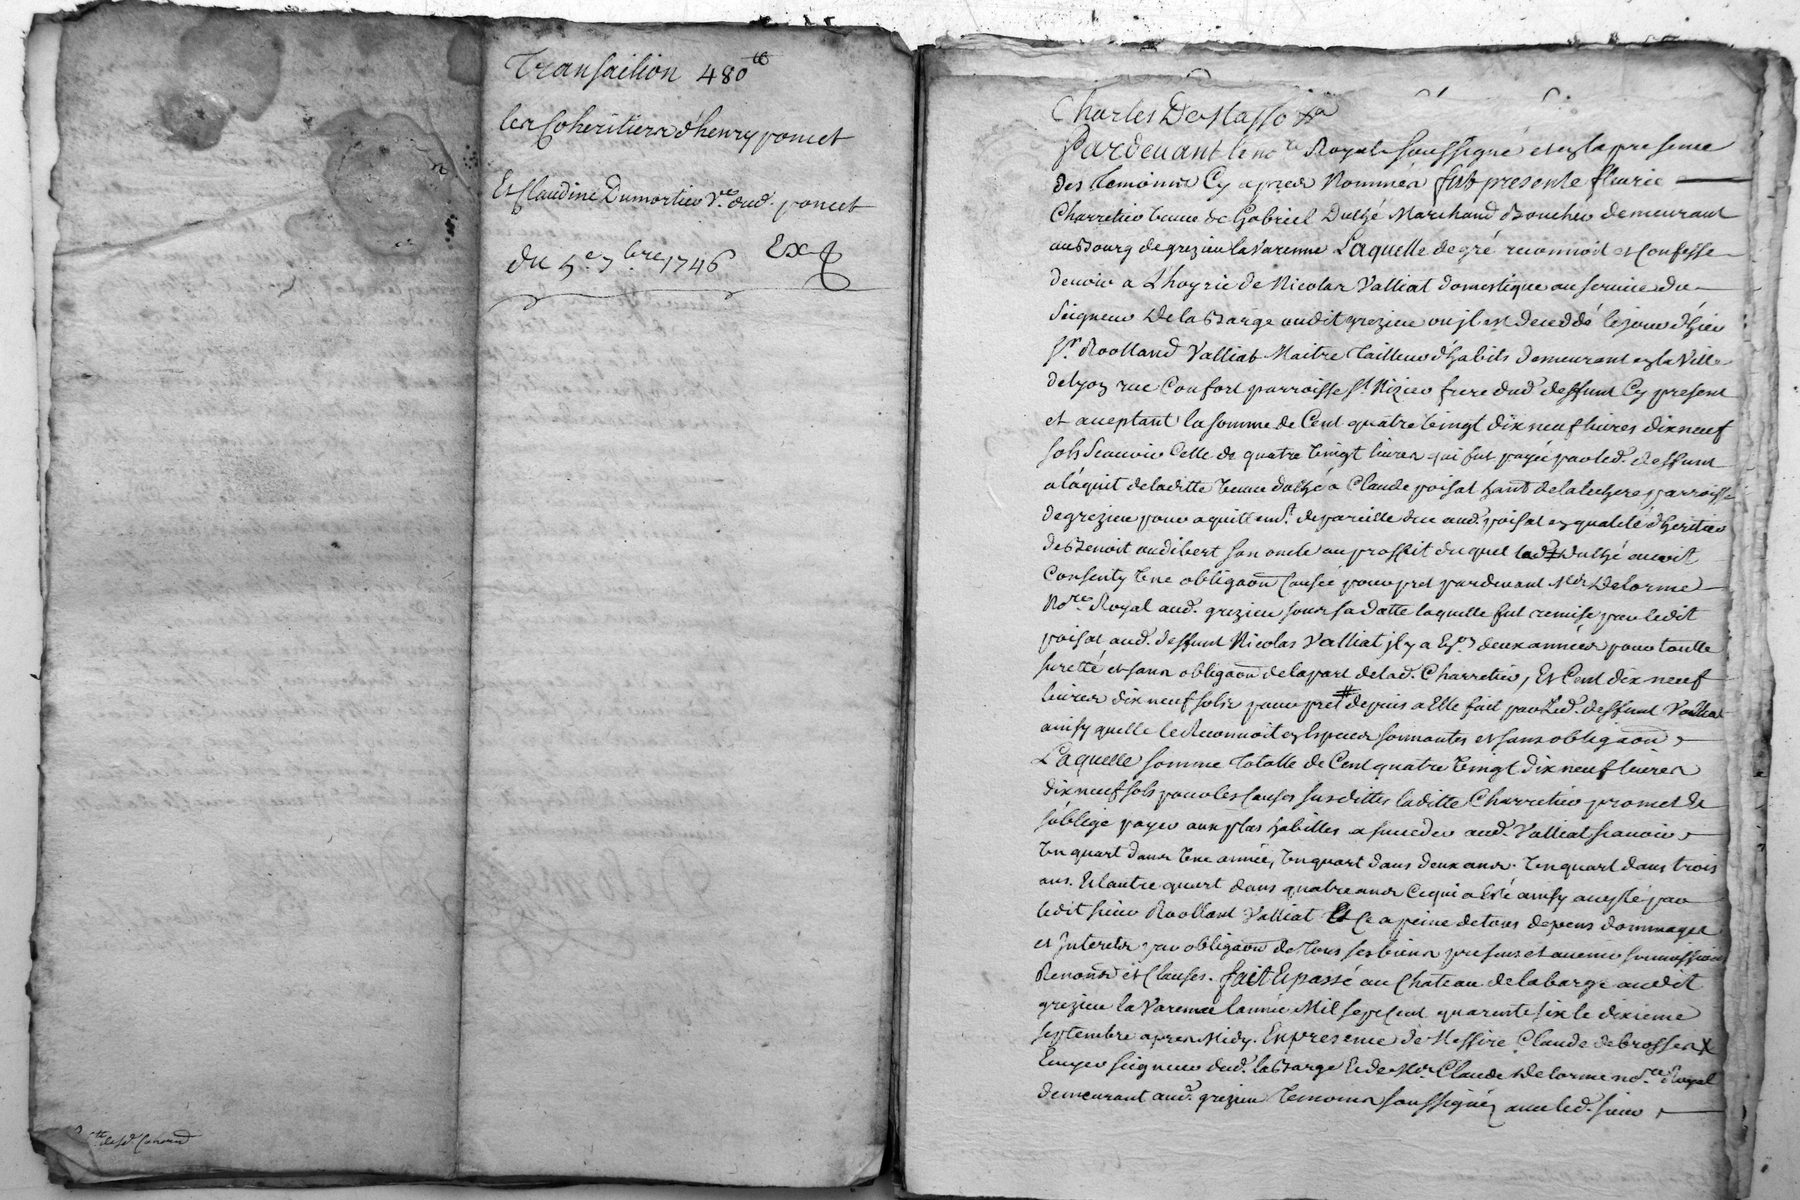 Transaction 480 tt
les Coheritiers d'henry poncet
Et Claudine Dumortier Ve. dud. poncet
du 5e 7bre 1746 Ex
Charles
Pardevant le nore Royal soussigné et en la presence
des temoins Cy apres Nommes fut presente fleurie
Charretier veuve de Gabriel Duthé Marchand Boucher demeurant
au Bourg de grezieu la Varenne Laquelle de gré reconnoit et Confesse
devoir a L'hoyrie de Nicolas Valliat domestique au service du
Seigneur De la Barge audit grezieu ou jl est deceddé le jour d'hier
Sr. Roolland Valliat Maitre Tailleur d'habits demeurant en la Ville
de lyon rue Confort parroisse St. Nizier frere dud. deffunt Cy present
et acceptant la somme de Cent quatre vingt dix neuf livres dix neuf
sols scavoir Celle de quatre vingt livres qui fut payée par led. deffunt
a l'aquit de laditte veuve duthé a Claude poisat hant. de la parroisse
de grezieu pour aquittemt. de pareille due aud. poisat en qualité d'heritier
de Benoit audibert son oncle au proffit duquel Duthé auroit
Consenty une obligaon Causée pour pret pardevant Me Delorme
Nore. Royal aud. grezieu sous sa datte laquelle fut remise par ledit
poisat aud. deffunt Nicolas Valliat jl y a deux années pour toutte
suretté et sans obligaon de la part de lad. Charretier, Et Cent dix neuf
livres dix neuf sols pour pret # depuis a Elle fait par Led. deffunt Valliat
ainsy quelle le Reconnoit en Especes sonnantes et sans obligaon
Laquelle somme totalle de Cent quatre vingt dix neuf livres
dix neuf sols pour les Causes susdittes laditte Charretier promet et
s'oblige payer aux plus habilles a succeder aud. Valliat scavoir
Un quart dans Une année, Un quart dans deux ans. Un quart dans trois
ans. Et l'autre quart dans quatre ans Ce qui a Eté ainsy accepté par
ledit sieur Roolland Valliat Et Ce a peine de tous depens dommages
et Interets par obligaon de tous ses biens presens et avenir soumission
Renonson et Clauses. fait Et passé au Chateau de la barge audit
grezieu la Varenne l'année Mil sept Cent quarante six le dixieme
septembre apres Midy. En presence de Messire Claude de brosses X
Ecuyer seigneur dud. la Barge Et de Me. Claude Delorme nore. Royal
demeurant aud. grezieu temoins soussignéz avec led. sieur